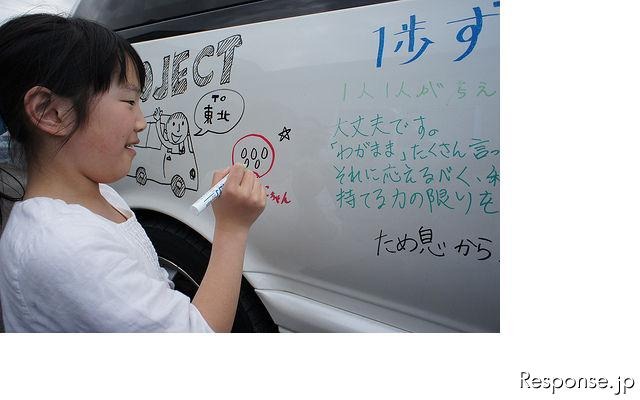 OJECT
1歩ず
TO
東北
1人1人が
大丈夫です。
「わがまま」たくさん言っ
それに応えるべく、
持てる力の限りを
ちゃん
ため息から
Response.jp